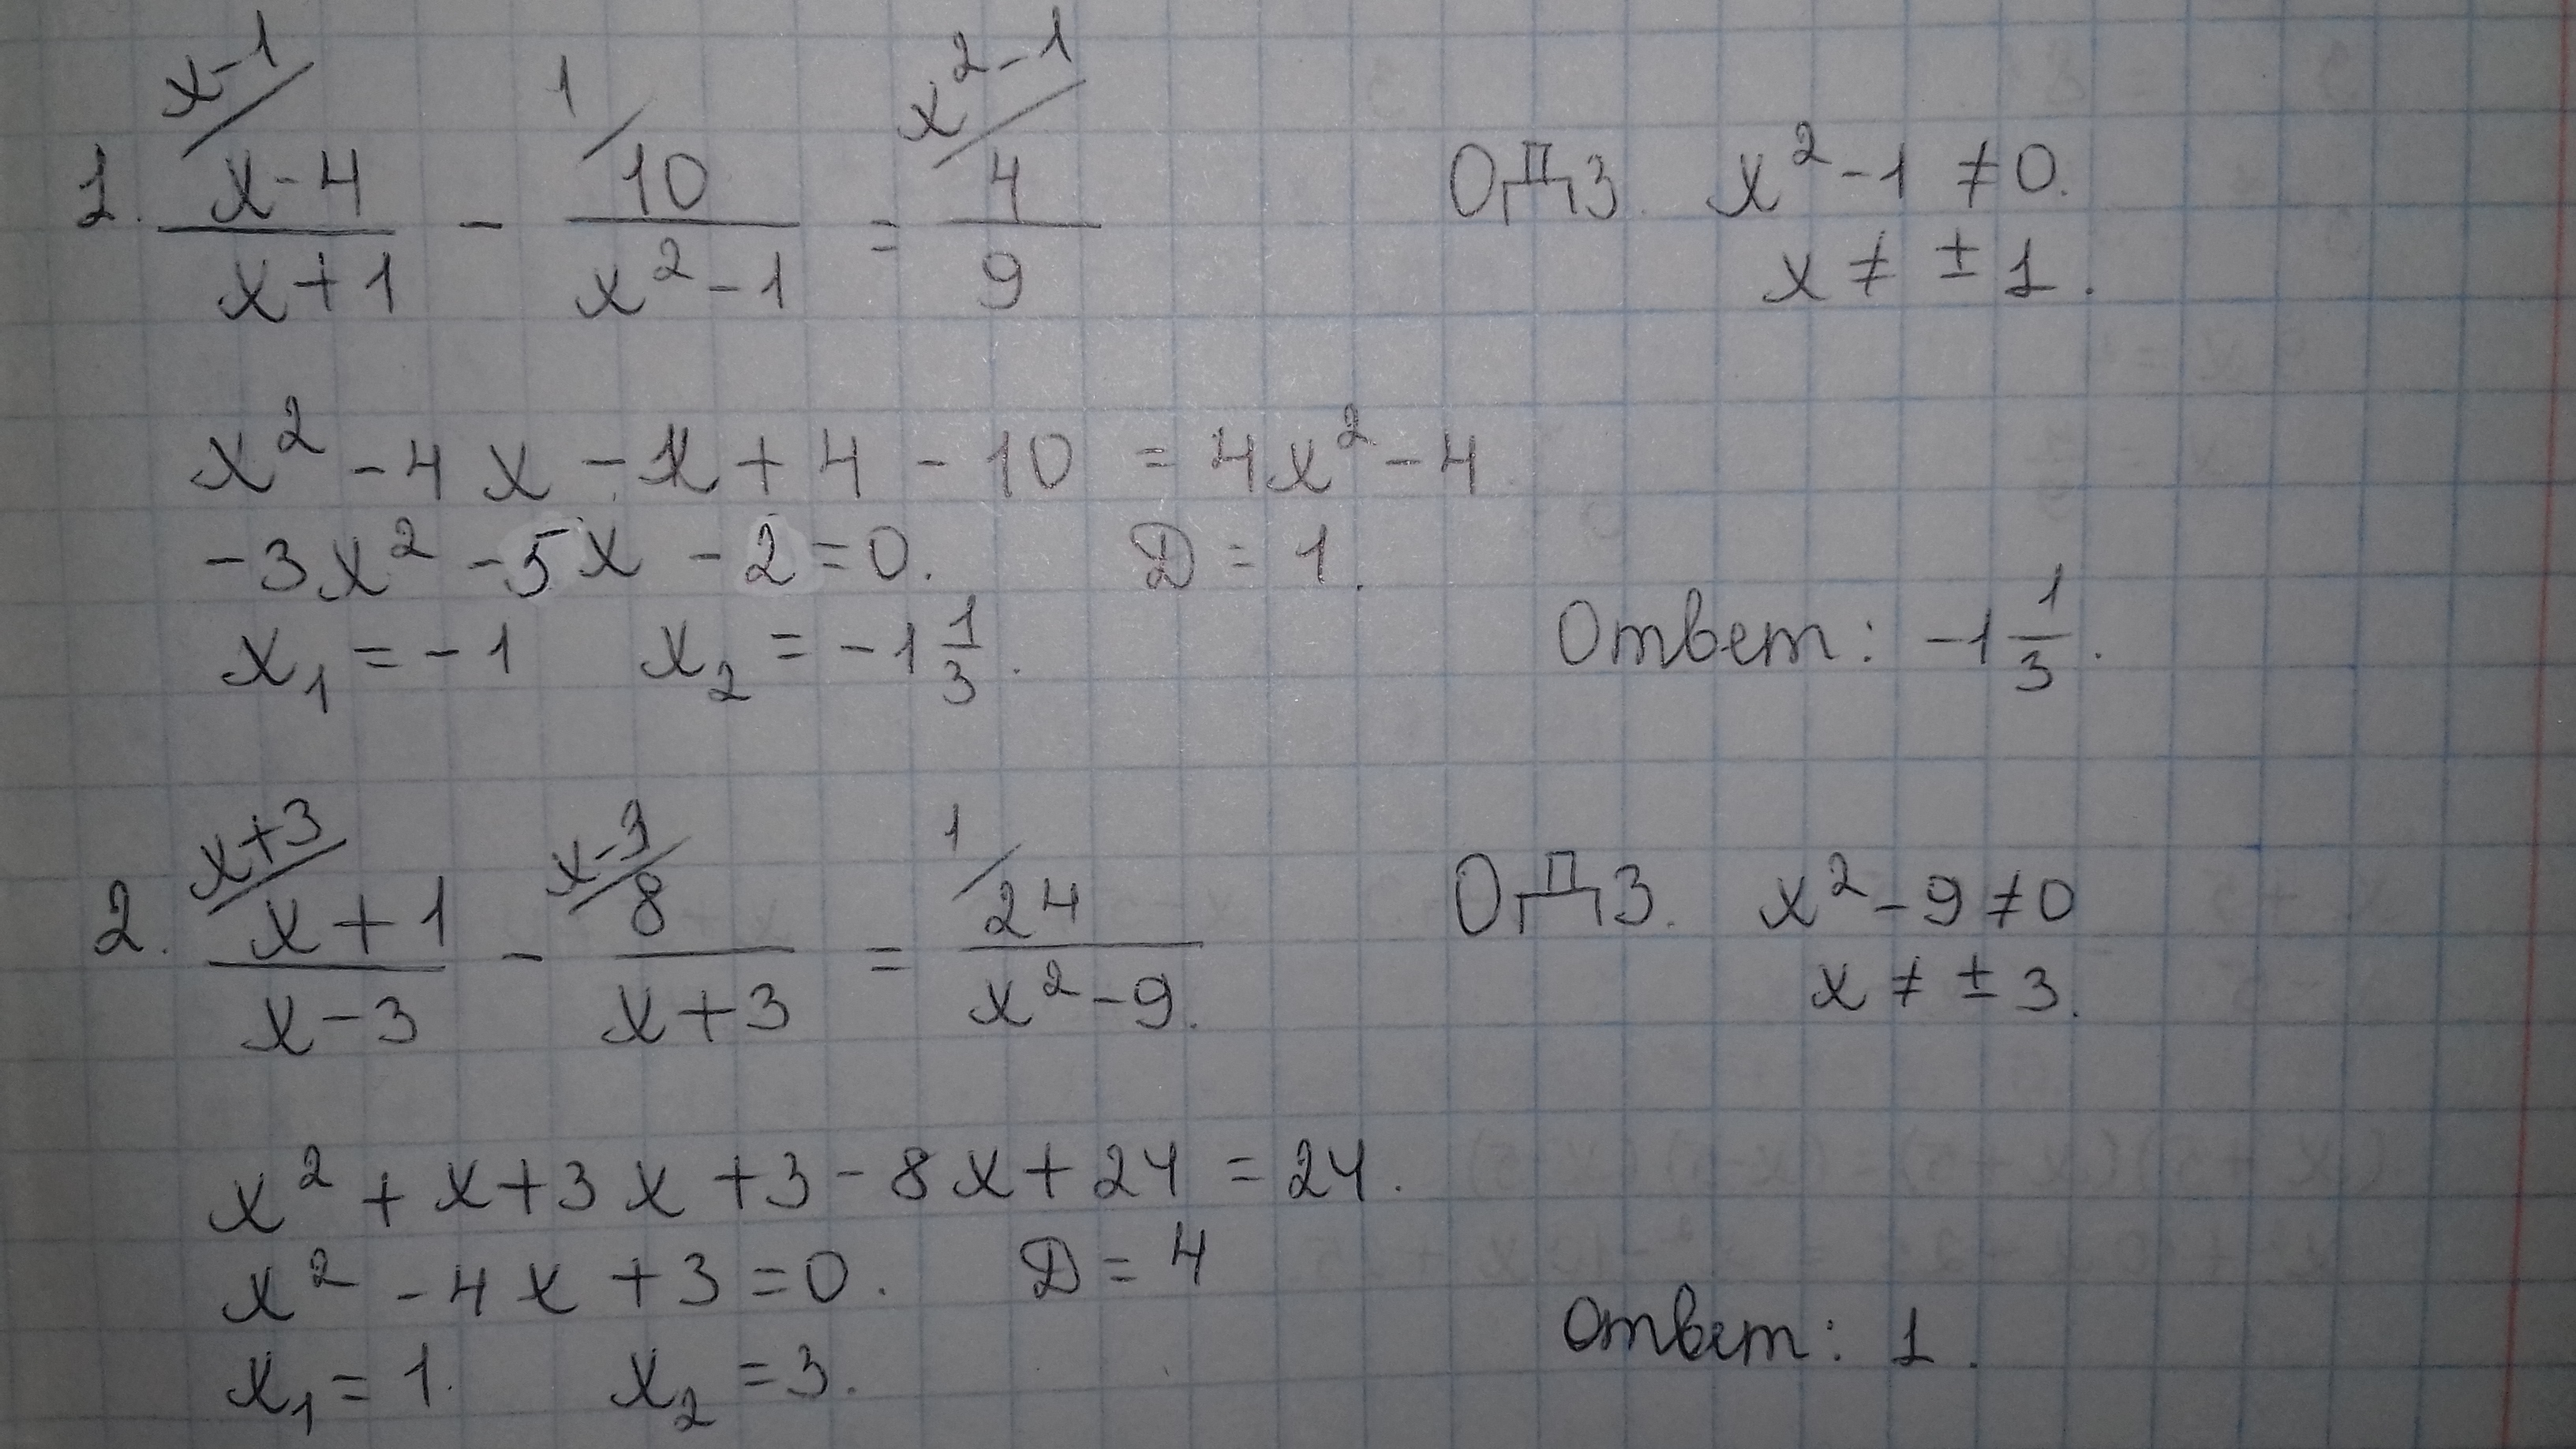 x-1/ 1/ x²-1/
1. (x-4)/(x+1) - 10/(x²-1) = 4/9 ОДЗ. x²-1 ≠ 0.
x ≠ ± 1.
x² - 4x - x + 4 - 10 = 4x² - 4
-3x² - 5x - 2 = 0. D = 1.
x₁ = -1 x₂ = -1 1/3. Ответ: -1 1/3.
x+3/ x-3/ 1/
2. (x+1)/(x-3) - 8/(x+3) = 24/(x²-9). ОДЗ. x²-9 ≠ 0
x ≠ ± 3.
x² + x + 3x + 3 - 8x + 24 = 24.
x² - 4x + 3 = 0. D = 4
x₁ = 1. x₂ = 3. Ответ: 1.